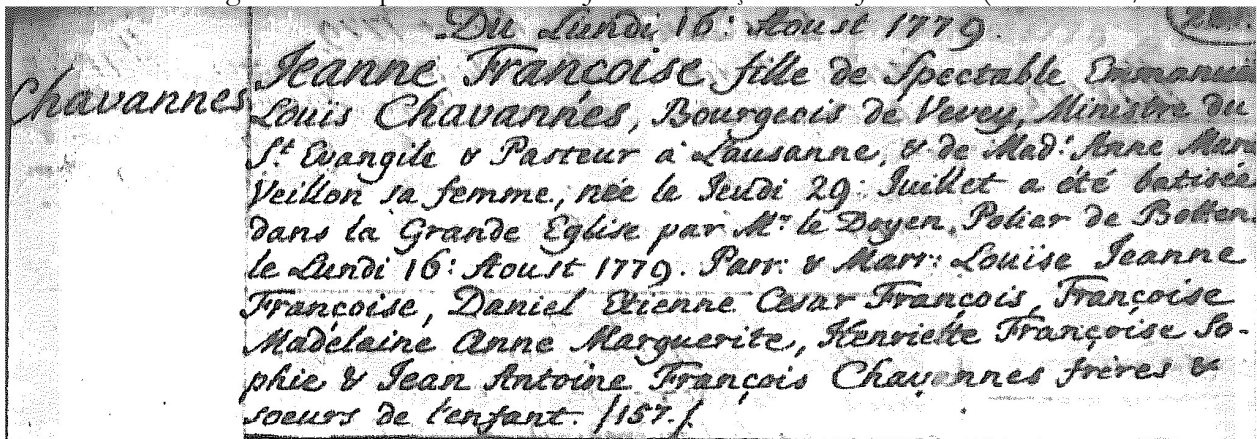 Du Lundi 16: Aoust 1779.
Chavannes
Jeanne Françoise, fille de Spectable Emmanuel
Louïs Chavannes, Bourgeois de Vevey, Ministre du
St. Evangile & Pasteur à Lausanne, & de Mad: Anne Mar
Veillon sa femme, née le Jeudi 29: Juillet a été batisée
dans la Grande Eglise par Mr. le Doyen Polier de Botten.
le Lundi 16: Aoust 1779. Parr: & Marr: Louïse Jeanne
Françoise, Daniel Etienne Cesar François, Françoise
Madelaine Anne Marguerite, Henriette Françoise So-
phie & Jean Antoine François Chavannes frères &
soeurs de l'enfant. /157./